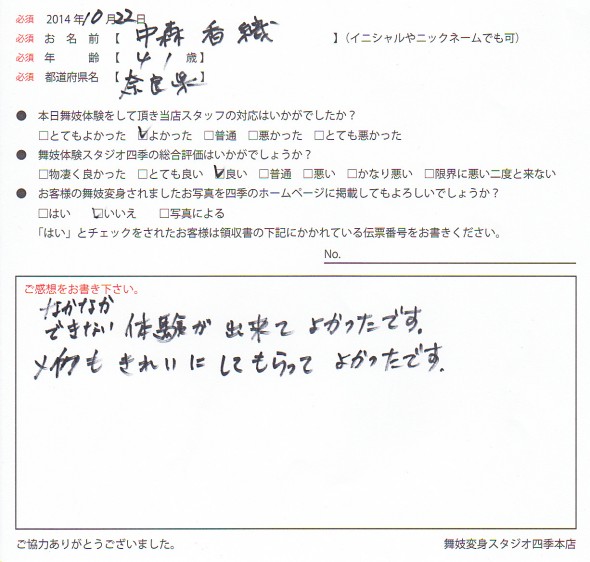 必須 2014年10月22日
必須 お名前【 中森香織 】(イニシャルやニックネームでも可)
必須 年齢【 41歳】
必須 都道府県名【 奈良県】
● 本日舞妓体験をして頂き当店スタッフの対応はいかがでしたか?
□とてもよかった ☑よかった □普通 □悪かった □とても悪かった
● 舞妓体験スタジオ四季の総合評価はいかがでしょうか?
□物凄く良かった □とても良い ☑良い □普通 □悪い □かなり悪い □限界に悪い二度と来ない
● お客様の舞妓変身されましたお写真を四季のホームページに掲載してもよろしいでしょうか?
□はい ☑いいえ □写真による
「はい」とチェックをされたお客様は領収書の下記にかかれている伝票番号をお書きください。
No.
ご感想をお書き下さい。
なかなか
できない 体験が 出来て よかったです。
も きれいに してもらって よかったです。
ご協力ありがとうございました。
舞妓変身スタジオ四季本店